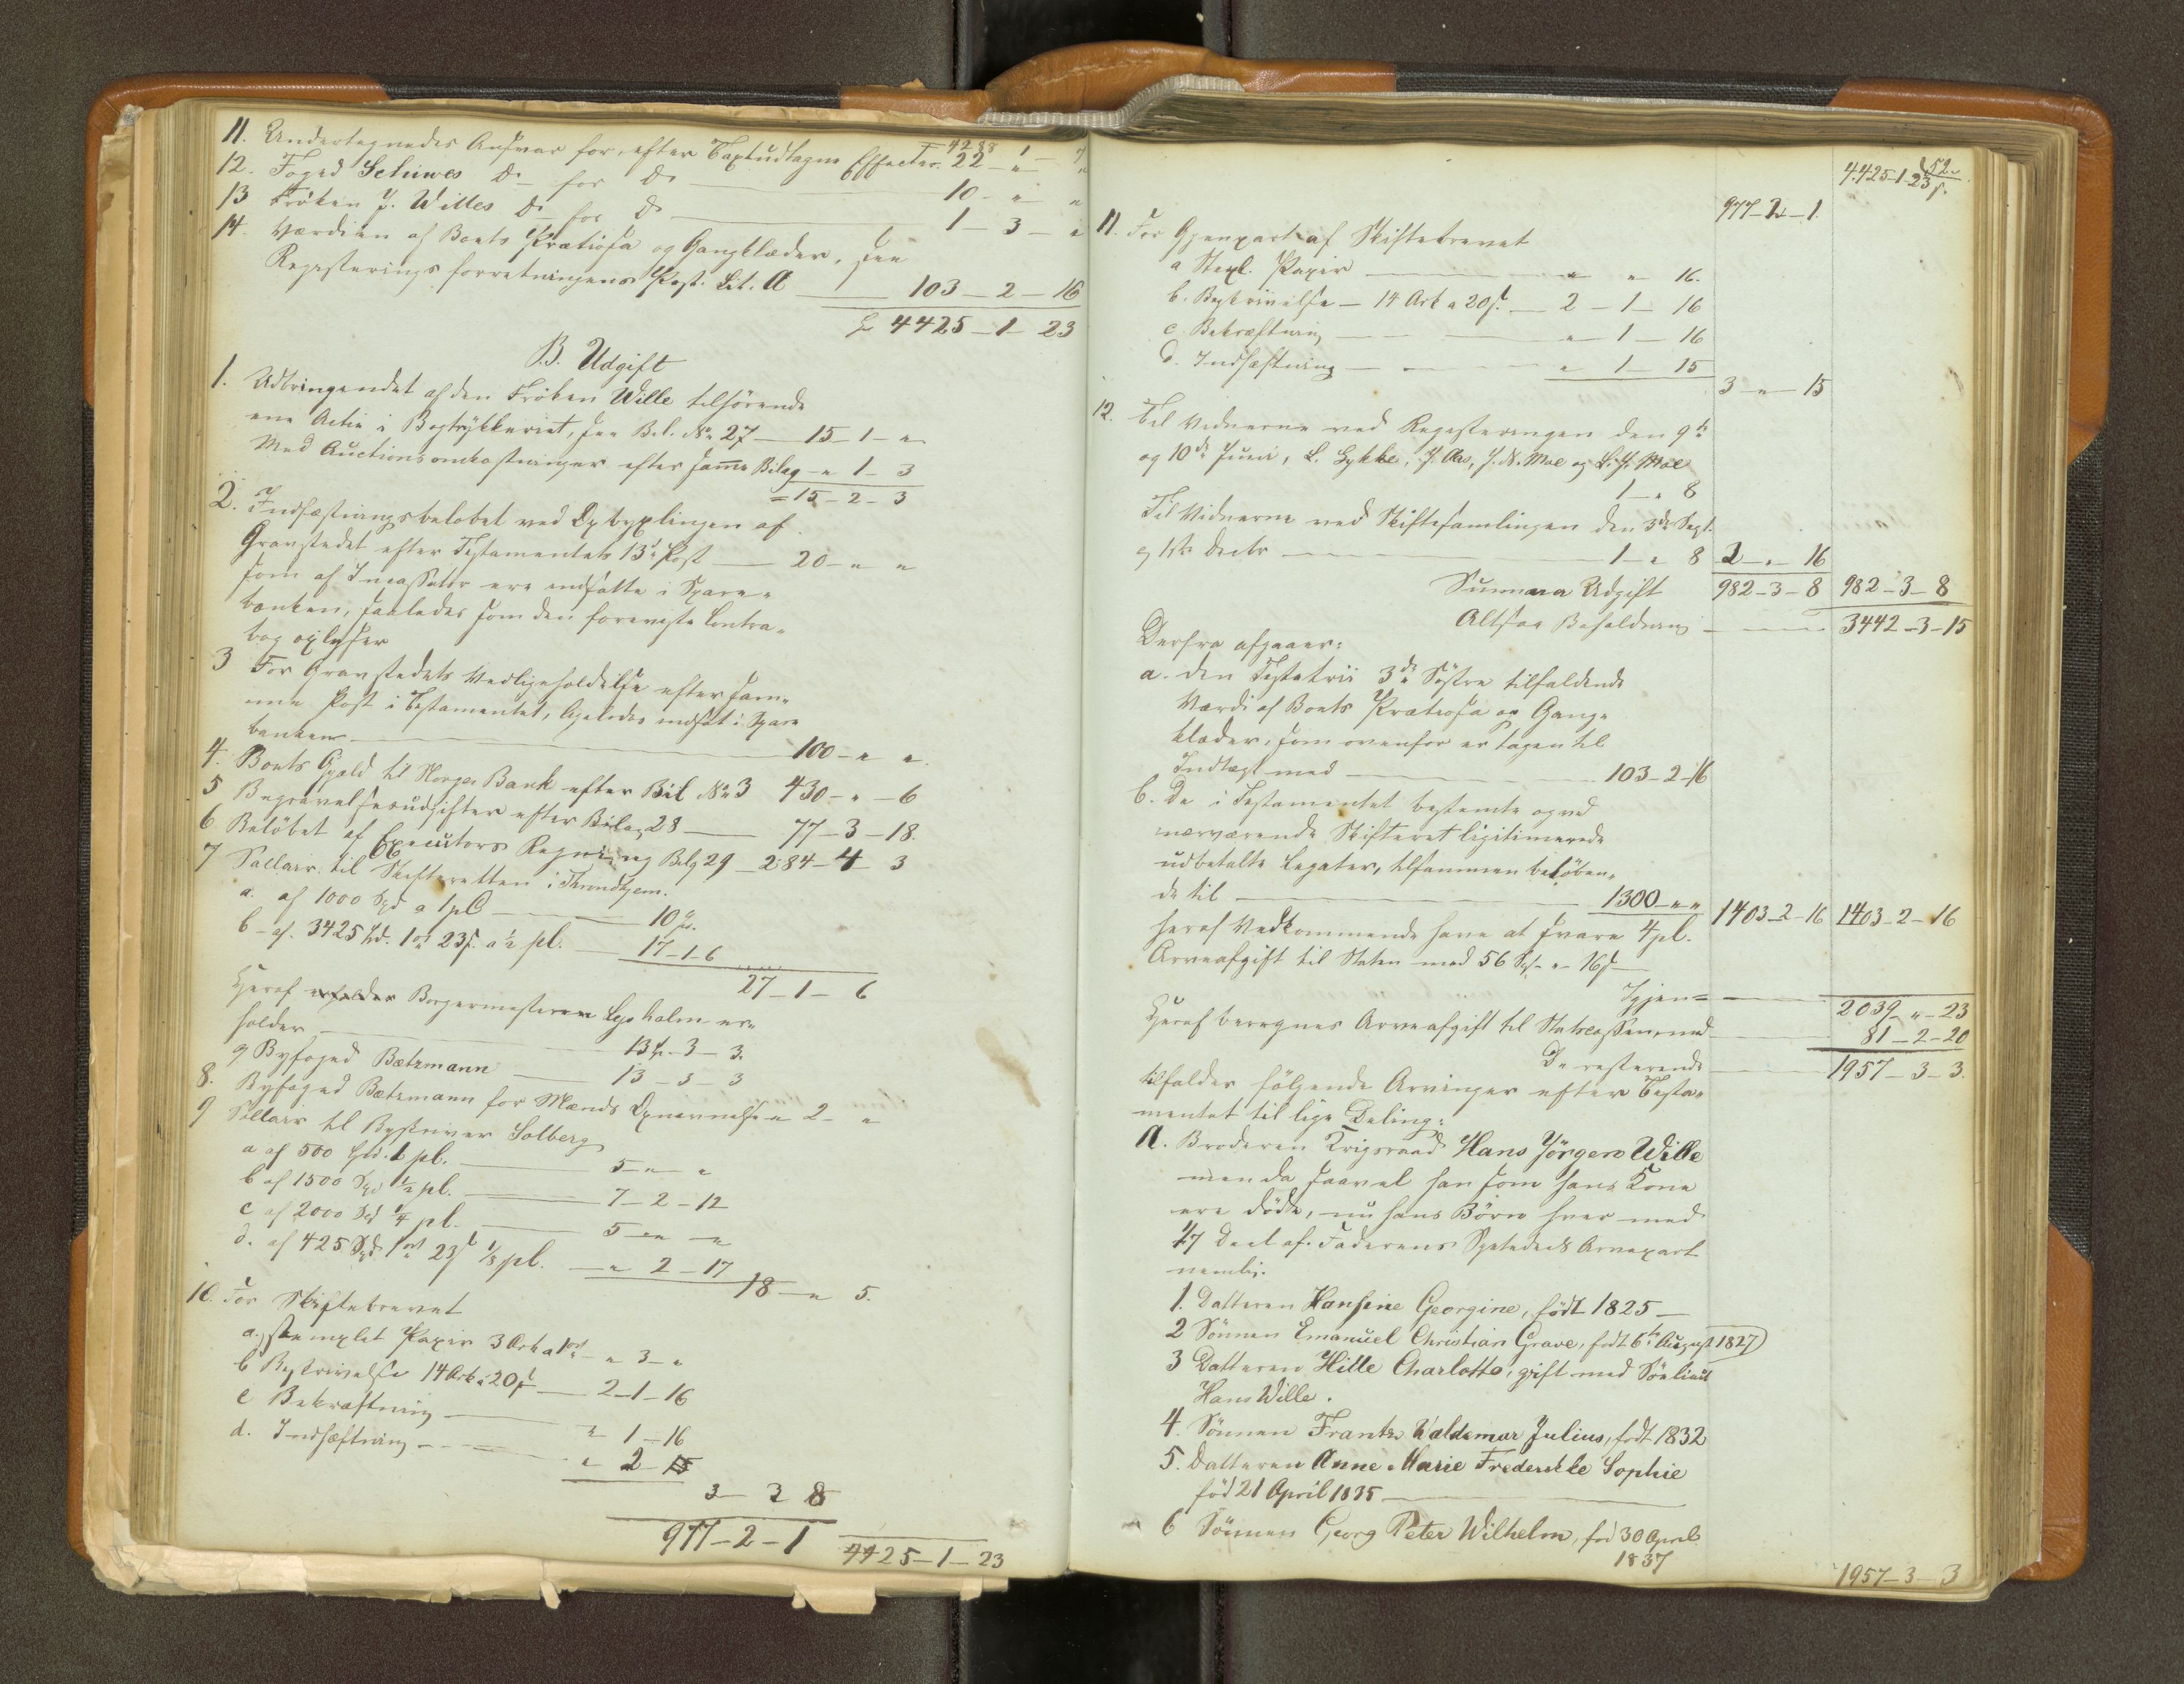 4288 - 1 - 7
11. Undertegnedes Ansvar for, efter Taxt udtagne Effecter. 22 - " - "
12. Foged Schiwes Do for Do 10 - " - "
13 Fröken J. Willes Do for Do 1 - 3 - "
14. Værdien af Boets Prætiosa og Gangklæder, see
Registerings forretningens Post. Lit. A 103 - 2 - 16
4425 - 1 - 23
B. Udgift
1. Udbringendet af den Fröken Wille tilhörende
ene Actie i Bogtrykkeriet, see Bil. No 27 - 15 - 1 - "
Med Auctionsomkostninger efter samme Bilag - " 1 - 3
= 15 - 2 - 3
2. Indfæstningsbeløbet ved Opbyglingen af
Gravstedet efter Testamentets 13de Post 20 - " "
som af Incassator ere indsatte i Spare-
banken, saaledes som den foreviste Contra-
bog oplyser
3 For Gravstedets Vedligeholdelse efter sam-
me Post i Testamentet, ligeledes indsat i Spare
banken 100 - " "
4. Boets Gjæld til Norges Bank efter Bil No 3 430 - " - 6
5 Begravelsesudgifter efter Bilag 28 77 - 3 - 18.
6 Belöbet af Executors Regning Bilg 29 - 284 - 4 - 3
7 Sallair til Skifteretten i Throndhjem.
a. af 1000 Spd a 1 pC 10 "
b - af. 3425 Spd. 1 ort 23 s. a ½ pC. 17 - 1 - 6
27 - 1 - 6
Heraf Borgermesteren Lysholm er-
holder 13 - 3 - 3.
og Byfoged Bætzmann 13 - 3 3
8. Byfoged Bætzmann for Mænds Opnævnelse " 2 - "
9 Sallair til Byskriver Solberg
a af 500 Spd. 1 pC. 5 - " "
b af 1500 Spd ½ pC. 7 - 2 - 12
c af 2000 Spd ¼ pC. 5 - " "
d. af 425 Spd 1 ort 23 s ⅛ pC. " 2 - 17
18 - " 5.
10. For Skiftebrevet
a., stemplet Papir 3 Ark a 1 ort " 3 - "
b Beskrivelse 14 Ark a 20 s 2 - 1 - 16
c Bekræftning " 1 - 16
d. Indhæftning " 2 -
3 - 3 8
977 - 2 - 1 4425 - 1 - 23
52.
977 - 2 - 1. 4425 - 1 - 23 s.
11. For Gjenpart af Skiftebrevet
a Stepl. Papir " " 16.
b. Beskrivelse - 14 Ark a 20 s. 2 - 1 - 16
c. Bekræftning " 1 - 16
d. Indhæftning " 1 - 15
3 - " - 15
12. Til Vidnerne ved Registeringen den 9de
og 10de Juni, L. Lykke, J. Aas, J. N. Moe og L. H. Moe
1 - " 8
Til Vidnerne ved Skiftesamlingen den 3de Sept.
og 1ste Decbr 1 - " 8 2 - " - 16
Summa Udgift 982 - 3 - 8 982 - 3 - 8
Altsaa Beholdning 3442 - 3 - 15
Derfra afgaaer:
a. den Testatrix 3de Søstre tilfaldende
Værdi af Boets Prætiosa og Gang-
klæder, som ovenfor er tagen til
Indtægt med 103 - 2 - 16
b. De i Testamentet bestemte og ved
nærværende Skifteret ligitimerede
udbetalte Legater, tilsammen belöben-
de til 1300 " " 1403 - 2 - 16 1403 - 2 - 16
heraf Vedkommende have at svare 4 pC.
Arveafgift til Staten med 56 Spd - " - 16 s
Igjen = 2039 - " - 23
Heraf beregnes Arveafgift til Statscassen, med 81 - 2 - 20
De resterende 1957 - 3 - 3.
tilfalder fölgende Arvinger efter Testa-
mentet til lige Deling:
A. Broderen Krigsraad Hans Jörgen Wille
men da saavel han som hans Kone
ere döde, nu hans Börn hver med
1/7 Deel af Faderens Arvepart
nemlig.
1. Datteren Hansine Georgine, födt 1825
2 Sönnen Emanuel Christian Grave, født 6te August 1827
3 Datteren Hille Charlotte, gift med
Hans Wille.
4. Sönnen Frantz Valdemar Julius, født 1832
5. Datteren Anne Marie Frederikke Sophie
föd 21 April 1835
6 Sönnen Georg Peter Wilhelm, fød 30 April
1837
1957 - 3 - 3